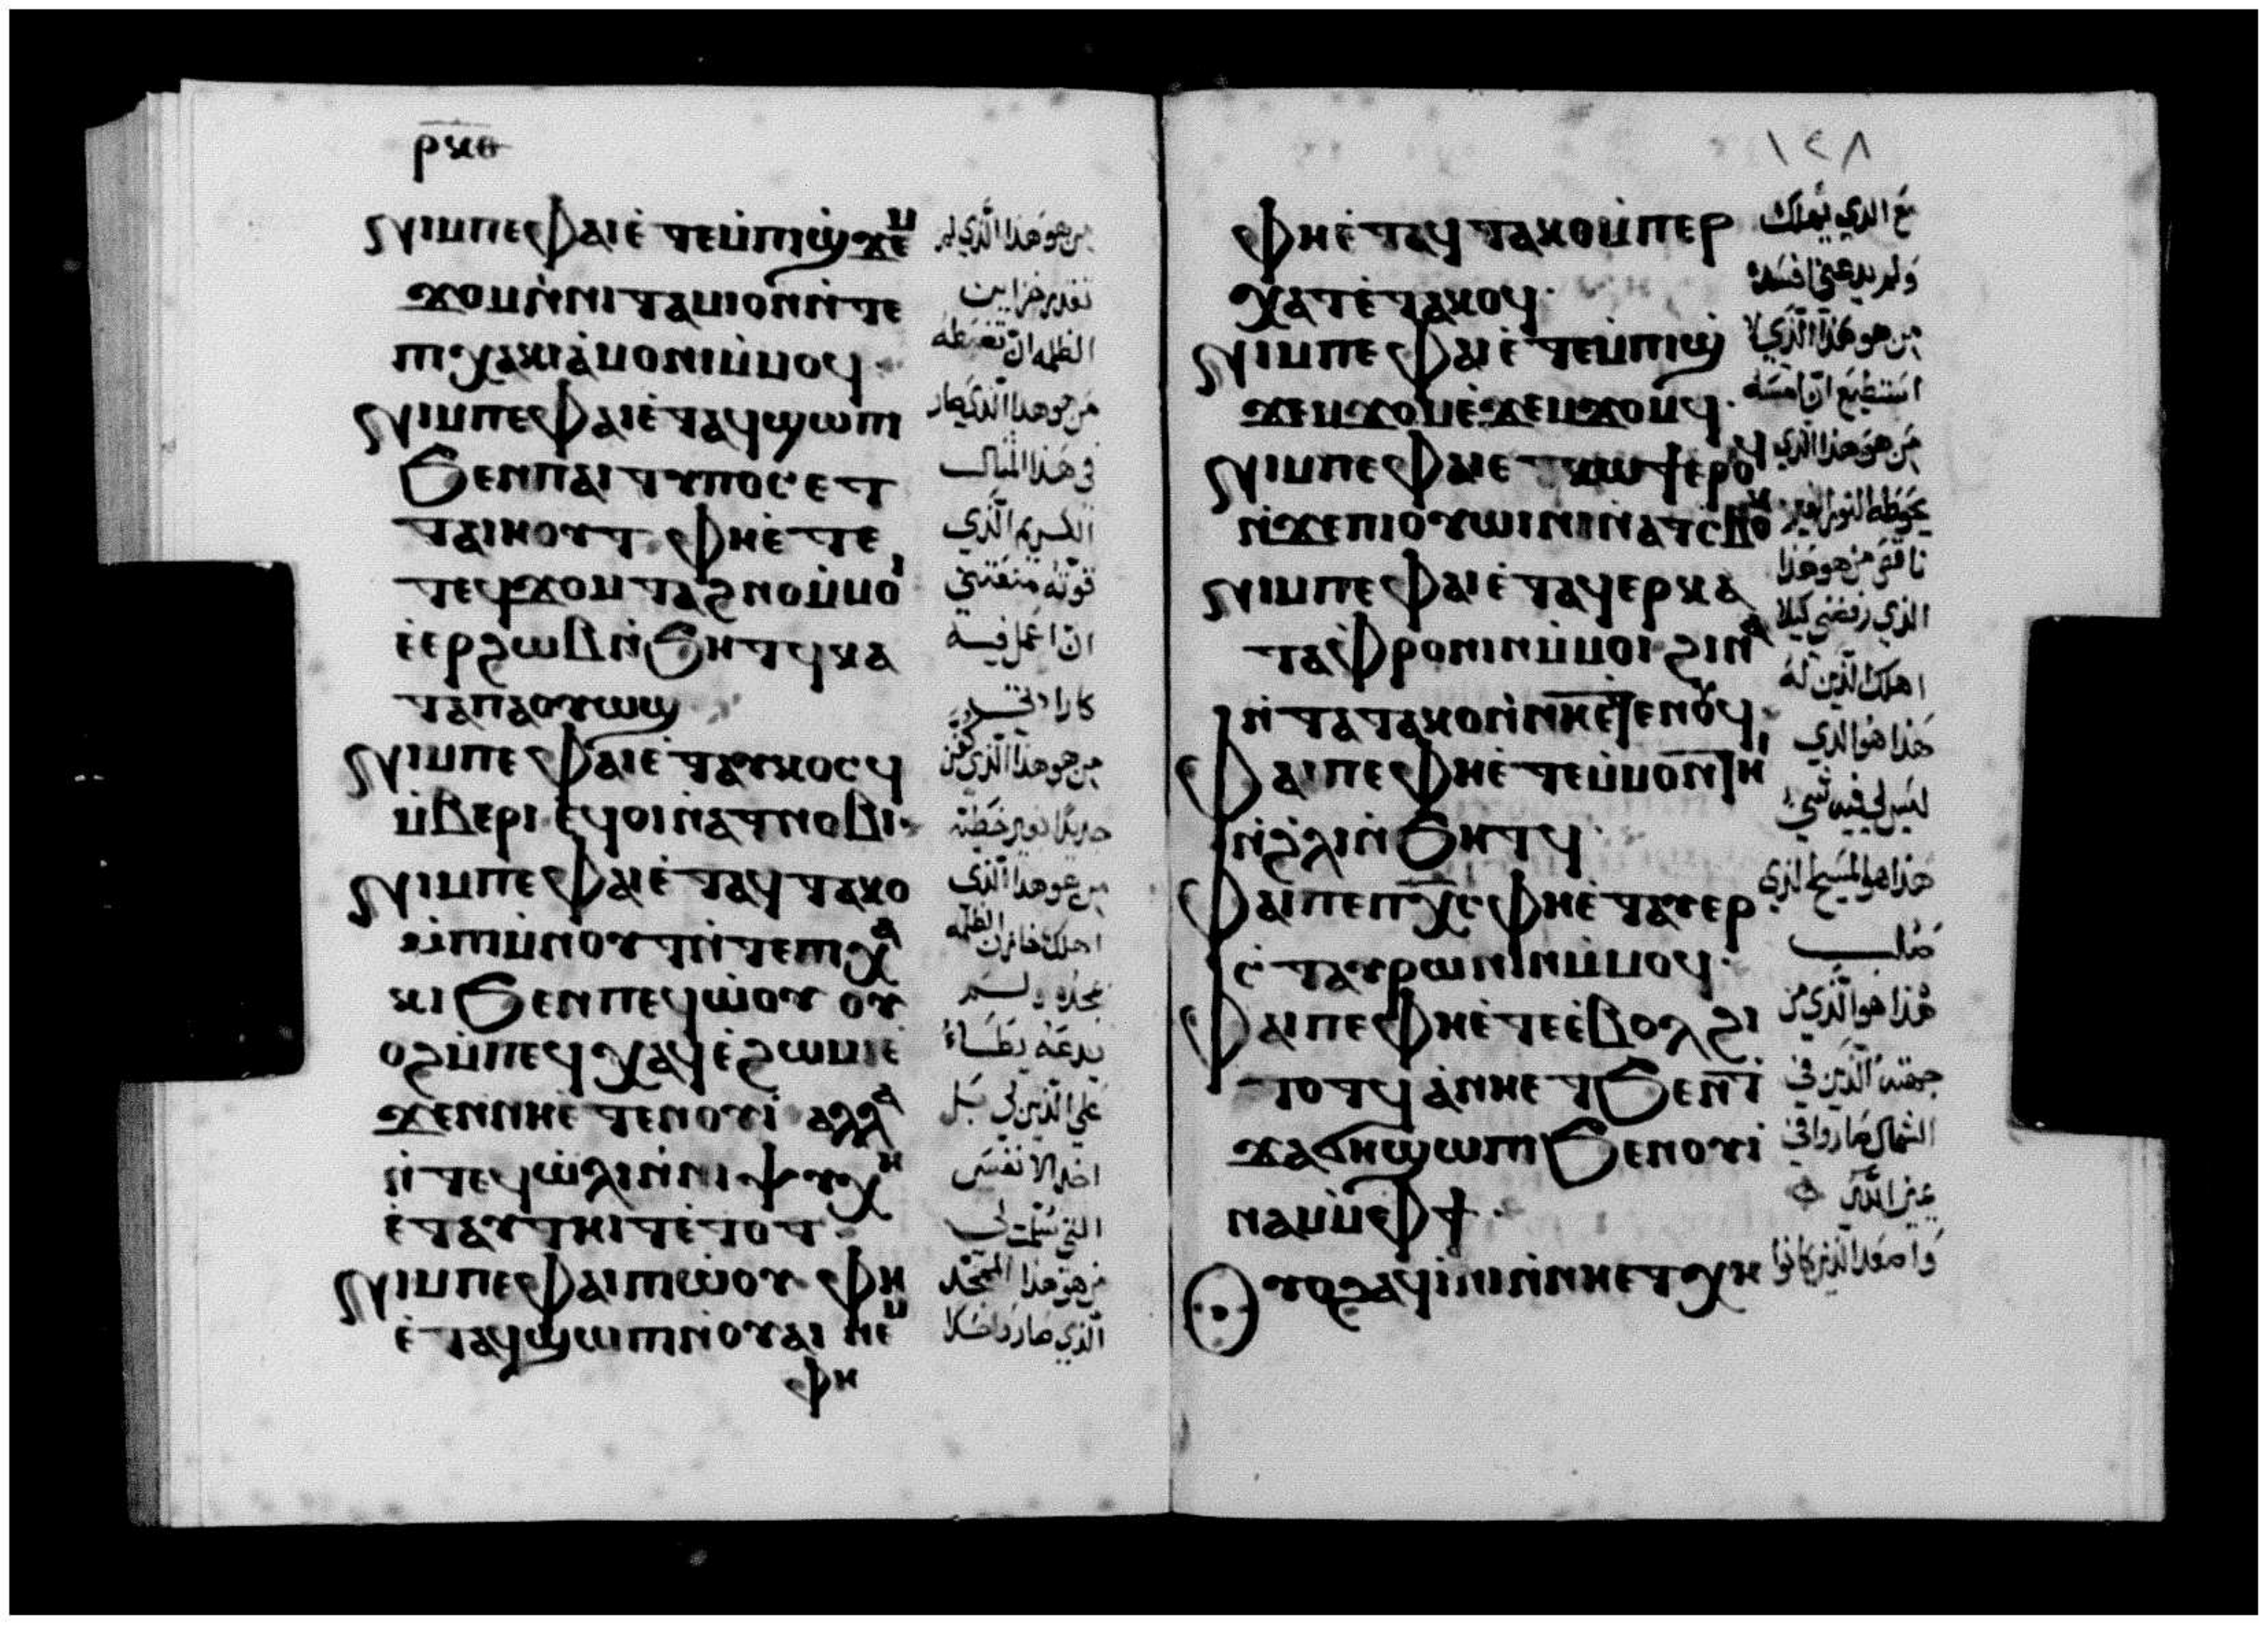 ⲣⲕⲑ
ⲛⲓⲙ ⲡⲉ ⲫⲁⲓ ⲉ̀ⲧⲉ ⲙ̀ⲡⲓϣ̀ϫⲉⲙ
ϫⲟⲙ ⲛ̀ⲛⲓⲧⲁⲙⲓⲟⲛ ⲛ̀ⲧⲉ
ⲡⲭⲁⲕⲓ ⲁ̀ⲙⲟⲛⲓ ⲙ̀ⲙⲟϥ·
ⲛⲓⲙ ⲡⲉ ⲫⲁⲓ ⲉ̀ⲧⲁϥϣⲱⲡⲓ
ϧⲉⲛ ⲡⲁⲓⲧⲩⲡⲟⲥ ⲉⲧ
ⲧⲁⲓⲏⲟⲩⲧ ⲫⲏ ⲉ̀ⲧⲉ
ⲧⲉϥϫⲟⲙ ⲧⲁϩⲛⲟ ⲙ̀ⲙⲟⲓ
ⲉ̀ⲉⲣϩⲱⲃ ⲛ̀ϧⲏⲧϥ ⲕⲁ
ⲧⲁ ⲡⲁⲟⲩⲱϣ
ⲛⲓⲙ ⲡⲉ ⲫⲁⲓ ⲉ̀ⲧⲁⲩⲕⲟⲥϥ
ⲙ̀ⲃⲉⲣⲓ ⲉϥⲟⲓ ⲛ̀ⲁⲧⲛⲟⲃⲓ·
ⲛⲓⲙ ⲡⲉ ⲫⲁⲓ ⲉ̀ⲧⲁϥⲧⲁⲕⲟ
ⲙ̀ⲡⲓⲙ̀ⲛⲟⲩϯ ⲛ̀ⲧⲉ ⲡⲭⲁ
ⲕⲓ ϧⲉⲛ ⲡⲉϥⲱ̀ⲟⲩ ⲟⲩ
ⲟϩ ⲙ̀ⲡⲉϥⲭⲁϥ ⲉ̀ϩⲱⲙⲓ ⲉ̀
ϫⲉⲛ ⲛⲏ ⲉ̀ⲧⲉ ⲛⲟⲩⲓ̀ ⲁⲗⲗⲁ
ⲛ̀ⲧⲉϥⲱ̀ⲗⲓ ⲛ̀ⲛⲓⲯⲩⲭⲏ
ⲉ̀ⲧⲁⲩⲧⲏⲓⲧ ⲉ̀ⲧⲟⲧ·
ⲛⲓⲙ ⲡⲉ ⲫⲁⲓ ⲡⲱ̀ⲟⲩ ⲫⲏ
ⲉ̀ⲧⲁϥϣⲱⲡⲓ ⲛ̀ⲟⲩⲁⲓ ⲛⲉⲙ
ⲫⲏ
من هو هذا الذي لم
تقدر خزاين
الظلمه ان تضبطه
من هو هذا الذي صار
في هذا المثال
الكريم الذي
قوته منعتني
ان اعمل فيه
كارادتي
من هو هذا الذي كفن
جديدا بغير خطية
من هو هذا الذي
اهلك خازن الظلمه
بمجده ولم
يدعه يطاء
علي الذين لي بل
اخذ الانفس
التي سلمت لي
من هو هذا الممجد
الذي صار واحدا
١٢٨
ⲫⲏ ⲉ̀ⲧⲁϥⲧⲁⲕⲟ ⲙ̀ⲡⲉⲣ
ⲭⲁⲧ ⲉ̀ⲧⲁⲕⲟϥ·
ⲛⲓⲙ ⲡⲉ ⲫⲁⲓ ⲉ̀ⲧⲉ ⲙ̀ⲡⲓϣ̀
ϫⲉⲙϫⲟⲙ ⲉ̀ϫⲉⲙϫⲟⲙϥ·
ⲛⲓⲙ ⲡⲉ ⲫⲁⲓ ⲉⲧⲕⲱϯ ⲉⲣⲟϥ
ⲛ̀ϫⲉ ⲡⲓⲟⲩⲱⲓⲛⲓ ⲛ̀ⲁⲧⲥⲙⲟⲩ
ⲛⲓⲙ ⲡⲉ ⲫⲁⲓ ⲉ̀ⲧⲁϥⲉⲣⲕⲁ
ⲧⲁⲫⲣⲟⲛⲓⲛ ⲙ̀ⲙⲟⲓ ϩⲓⲛⲁ
ⲛ̀ⲧⲁⲧⲁⲕⲟ ⲛ̀ⲛⲏ ⲉ̀ⲧⲉⲛⲟⲩϥ·
ⲫⲁⲓ ⲡⲉ ⲫⲏ ⲉ̀ⲧⲉ ⲙ̀ⲙⲟⲛϯⲏⲓ
ⲛ̀ϩ̀ⲗⲓ ⲛ̀ϧⲏⲧϥ·
ⲫⲁⲓ ⲡⲉ ⲡⲭ̅ⲥ̅ ⲫⲏ ⲉ̀ⲧⲁⲩⲉⲣ
ⲥⲧⲁⲩⲣⲱⲛⲓⲛ ⲙ̀ⲙⲟϥ·
ⲫⲁⲓ ⲡⲉ ⲫⲏ ⲉ̀ⲧⲉ ⲉ̀ⲃⲟⲗ ϩⲓ
ⲧⲟⲧϥ ⲁ̀ ⲛⲏ ⲉⲧϧⲉⲛ ϯ
ϫⲁϭⲏ ϣⲱⲡⲓ ϧⲉⲛ ⲟⲩⲓ̀
ⲛⲁⲙ ⲙ̀ⲫϯ·
ⲟⲩⲟϩ ⲁϥⲓ̀ⲛⲓ ⲛ̀ⲛⲏ ⲉⲧⲭⲏ
مع الذي يهلك
ولم يدعني افسده
من هو هذا الذي لا
استطيع ان امسكه
من هو هذا الذي
يحوطه النور الغير
ناقص من هو هذا
الذي رفضني كيلا
اهلك الذين له
هذا هو الذي
ليس لي فيه شي
هذا هو المسيح الذي
صلب
هذا هو الذي من
جهته الذين في
الشمال صاروا في
يمين الله
واصعد الذين كانوا